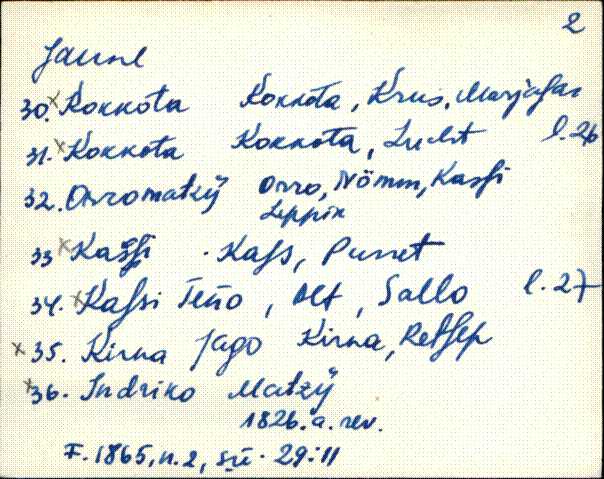 2
Jaune
30. x Konnota Konnota, Krus, Marjapu
31. x Konnota Konnota, Lucht l. 26
32. Orromatzÿ Orro, Nõmm, Kaſsi
Leppik
33 x Kaſsi Kaſs, Purret
34. x Kaſsi Teño, Alt, Sallo l. 27
x 35. Kirna Jago Kirna, Retſep
x 36. Indriko Matzÿ
1826. a. rev.
F. 1865, n. 2, sü. 29:11